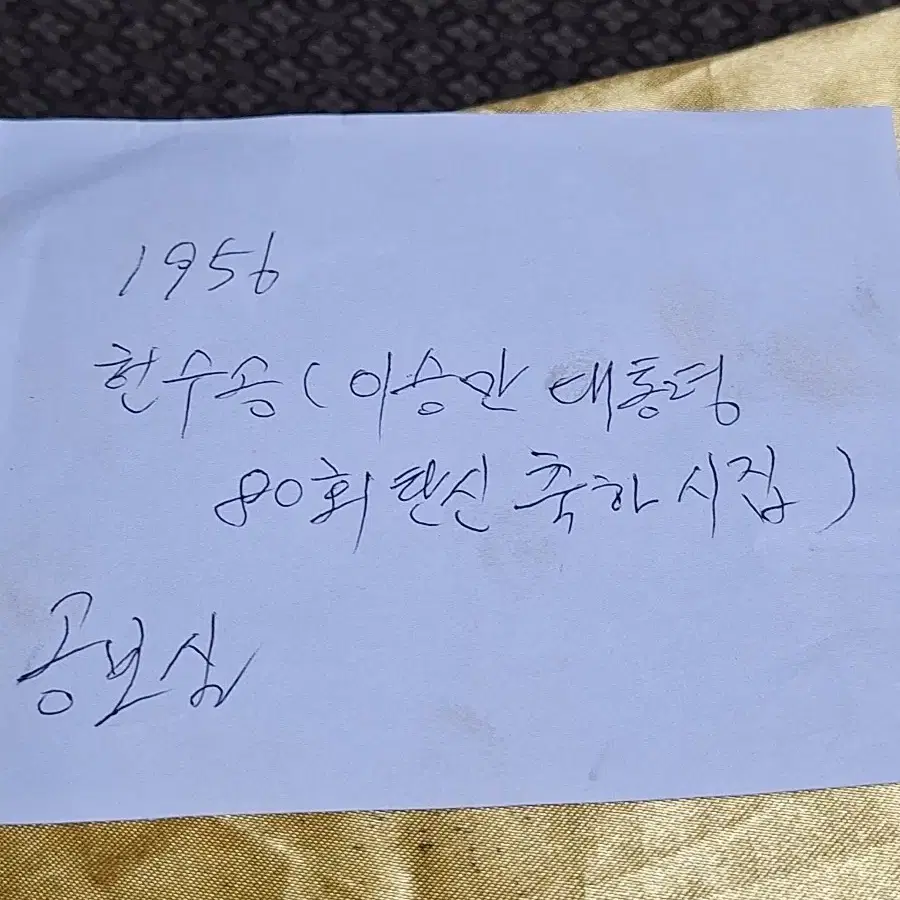 1956
헌수송 (이승만 대통령
80회 탄신 축하 시집)
공보실